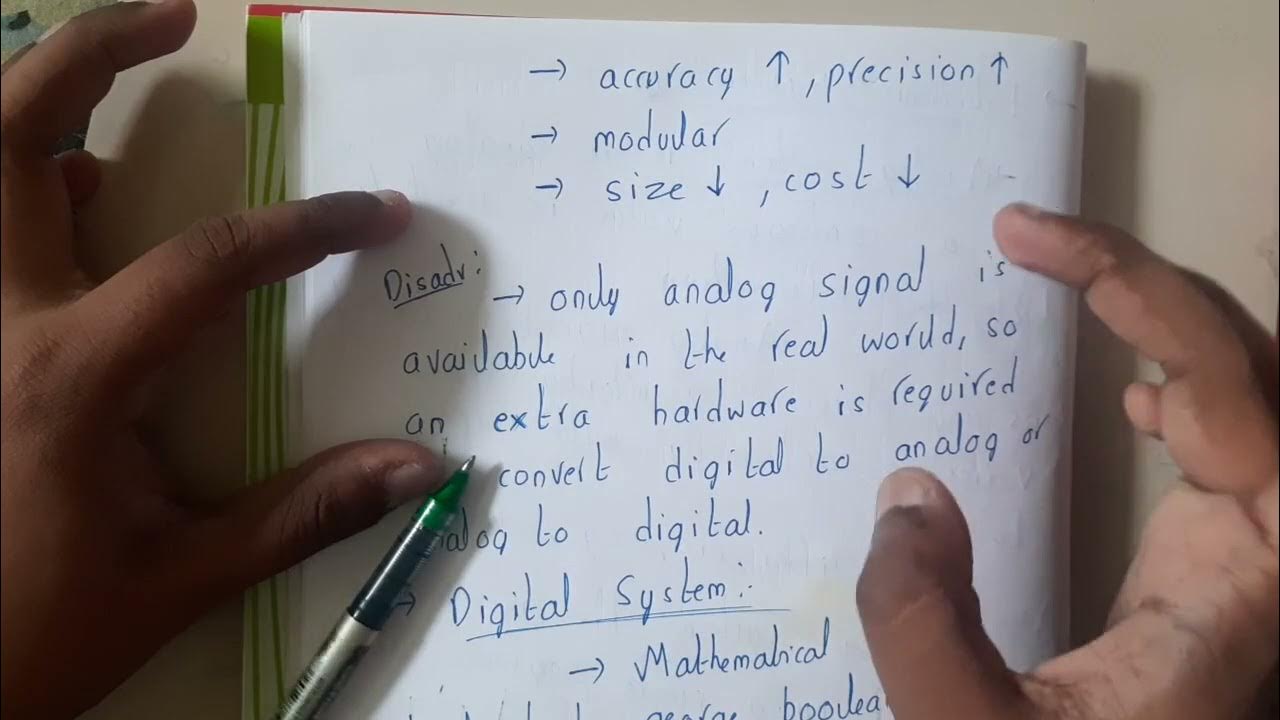 → accuracy ↑, precision ↑
→ modular
→ size ↓, cost ↓
Disadv:
→ only analog signal is
available in the real world, so
an extra hardware is required
convert digital to analog or
to digital.
→ Digital System:-
→ Mathematical
george boolea